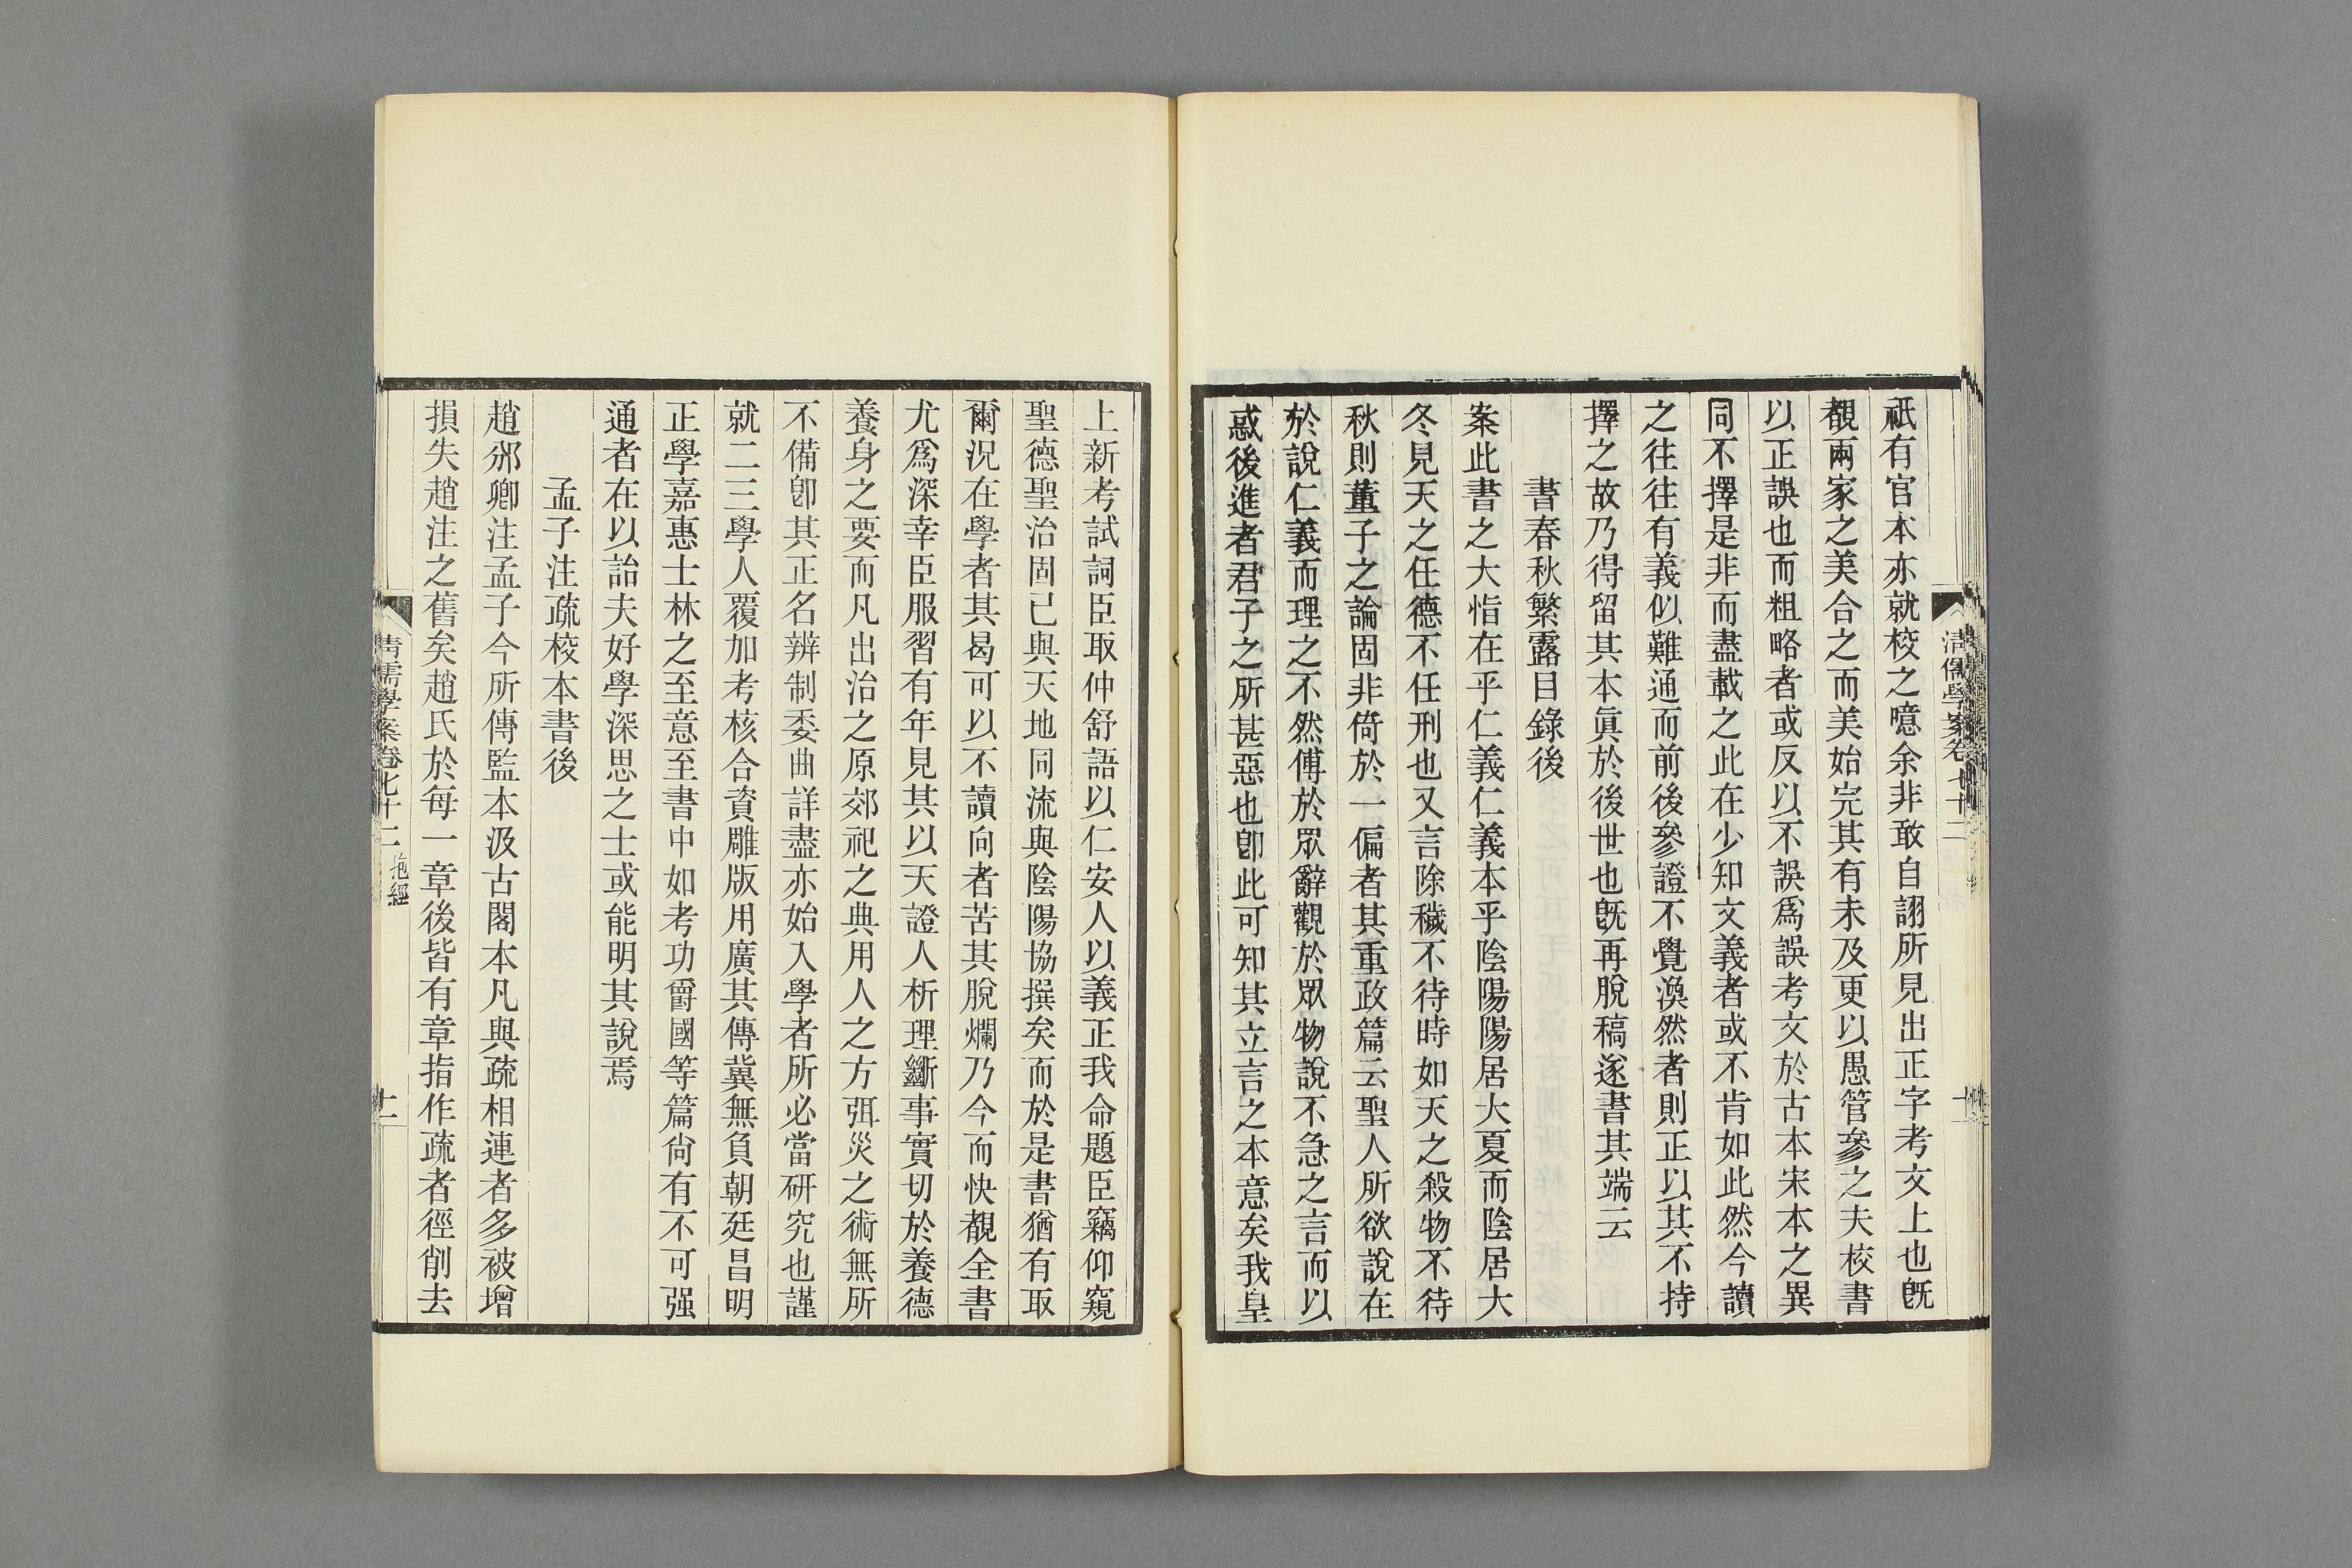 清儒學案卷七十二
祇有官本亦就校之噫余非敢自詡所見出正字考文上也旣
覩兩家之美合之而美始完其有未及更以愚管參之夫校書
以正誤也而粗略者或反以不誤爲誤考文於古本宋本之異
同不擇是非而盡載之此在少知文義者或不肯如此然今讀
之往往有義似難通而前後參證不覺渙然者則正以其不持
擇之故乃得留其本眞於後世也旣再脫稿遂書其端云
書春秋繁露目錄後
案此書之大恉在乎仁義仁義本乎陰陽陽居大夏而陰居大
冬見天之任德不任刑也又言除穢不待時如天之殺物不待
秋則董子之論固非倚於一偏者其重政篇云聖人所欲說在
於說仁義而理之不然傅於眾辭觀於眾物說不急之言而以
惑後進者君子之所甚惡也卽此可知其立言之本意矣我皇
上新考試詞臣取仲舒語以仁安人以義正我命題臣竊仰窺
聖德聖治固已與天地同流與陰陽協撰矣而於是書猶有取
爾況在學者其曷可以不讀向者苦其脫爛乃今而快覩全書
尤爲深幸臣服習有年見其以天證人析理斷事實切於養德
養身之要而凡出治之原郊祀之典用人之方弭災之術無所
不備卽其正名辨制委曲詳盡亦始入學者所必當研究也謹
就二三學人覆加考核合資雕版用廣其傳冀無負朝廷昌明
正學嘉惠士林之至意至書中如考功爵國等篇尙有不可强
通者在以詒夫好學深思之士或能明其說焉
孟子注疏校本書後
趙邠卿注孟子今所傳監本汲古閣本凡與疏相連者多被增
損失趙注之舊矣趙氏於每一章後皆有章指作疏者徑削去
清儒學案卷七十二
抱經
十二